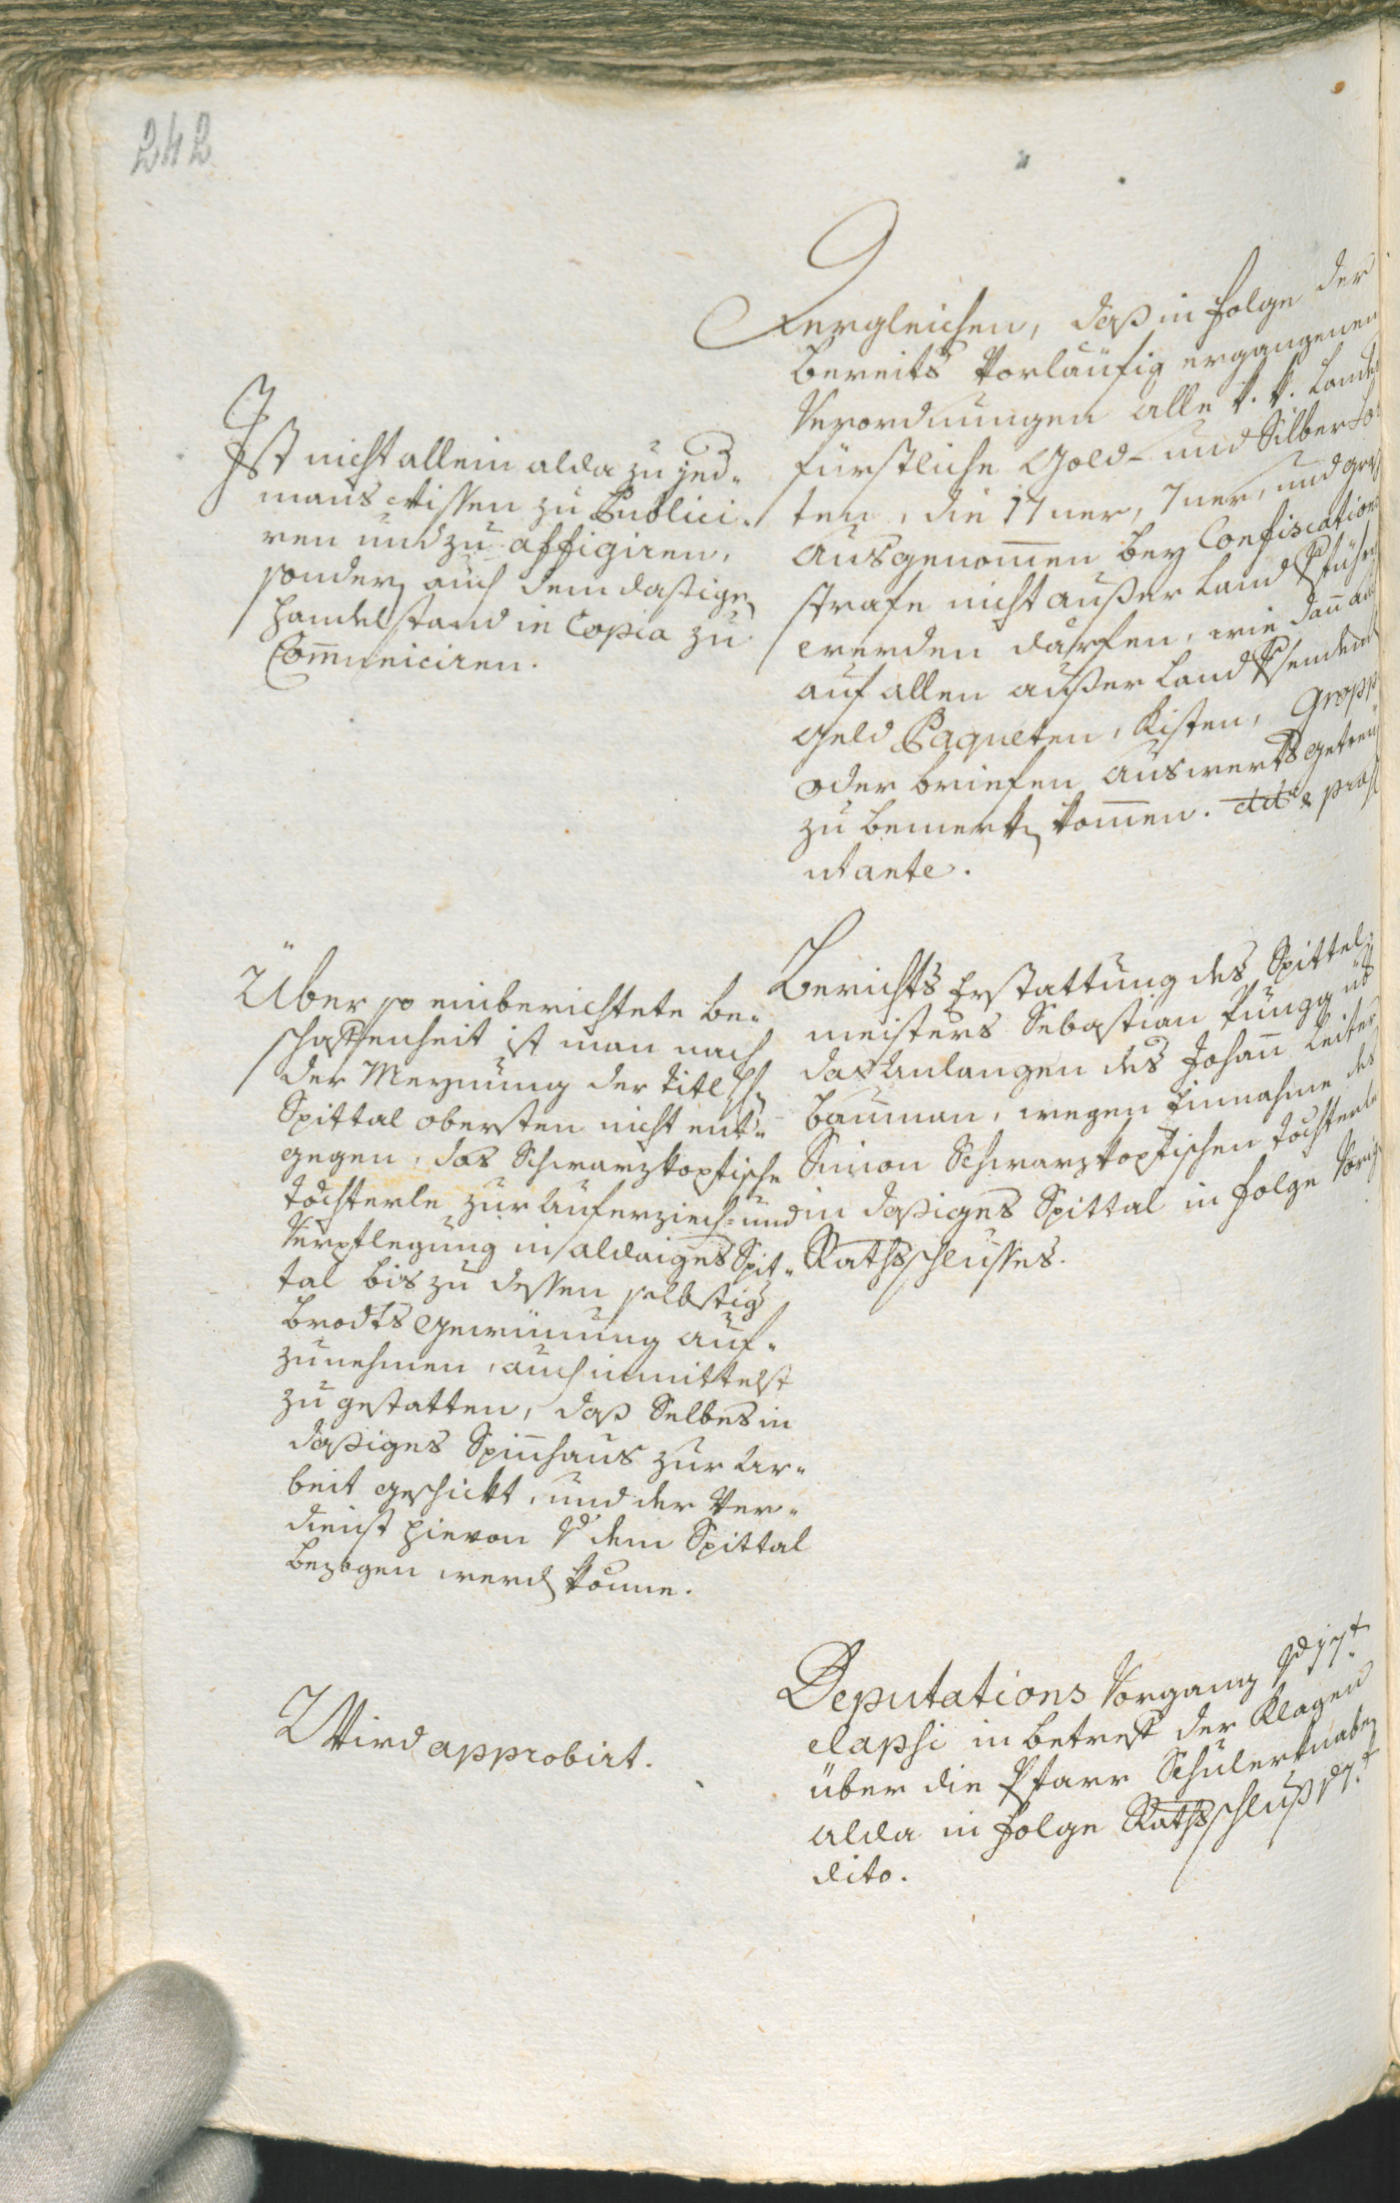 242
Dergleichen, daß in folge der
bereits vorläufig ergangenen
Verordnungen alle k. k. Landes
fürstliche Gold- und Silber Sor
ten, die 17ner, 7ner, und
ausgenom̄en bey Confiscations
strafe nicht außer Land geführt
werden därfen, wie dan̄ auch
auf allen außer Land gehenden
Geld Paqueten, Kisten,
oder briefen auswerts getreu
zu bemerken kom̄en. dd.º &
ut ante.
Ist nicht allein alda zu jeder-
mans wissen zu Publici-
ren und zu affigiren,
sondern auch dem dasigen
Handelstand in Copia zu
Com̄uniciren.
Berichts Erstattung des Spittel
meisters Sebastian Küngg üb
das Anlangen des Johan̄ Leiter
Bauman, wegen Einnahme des
Simon Schwarzkopfischen töchterle
in dasiges Spittal in folge vorig
Rathsschlusses.
Über so einberichtete Be-
schaffenheit ist man nach
der Meynung der Titl H
Spittal obersten nicht ent-
gegen, das Schwarzkopfische
töchterle zur Auferzieh- und
Verpflegung in aldaiges Spit-
tal bis zu dessen selbstig
Brodts Gewinnung auf-
zunehmen, auch inmittelst
zu gestatten, daß Selbes in
dasiges Spinnhaus zur Ar-
beit geschickt, und der Ver-
dienst hievon dem Spittal
bezogen werden könne.
Deputations Vorgang 17t
elapsi in betreff der Klagen
über die Pfarr Schülerknaben
alda in folge Rathsschluß 7t
dito.
Wird approbirt.